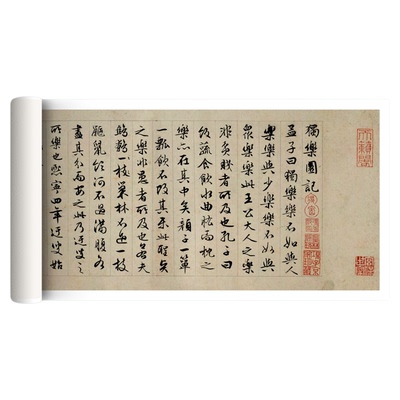 獨樂園記
孟子曰獨樂樂不如與人
樂樂與少樂樂不如與
眾樂樂此王公大人之樂
非貧賤者所及也孔子曰
飯蔬食飲水曲肱而枕之
樂亦在其中矣顏子一簞
一瓢飲不改其樂此聖賢
之樂非愚者所及也若夫
鷦鷯一枝巢林不過一枝
鼴鼠飲河不過滿腹各
盡其分而安之此乃迂叟之
所樂也熙寧四年迂叟始